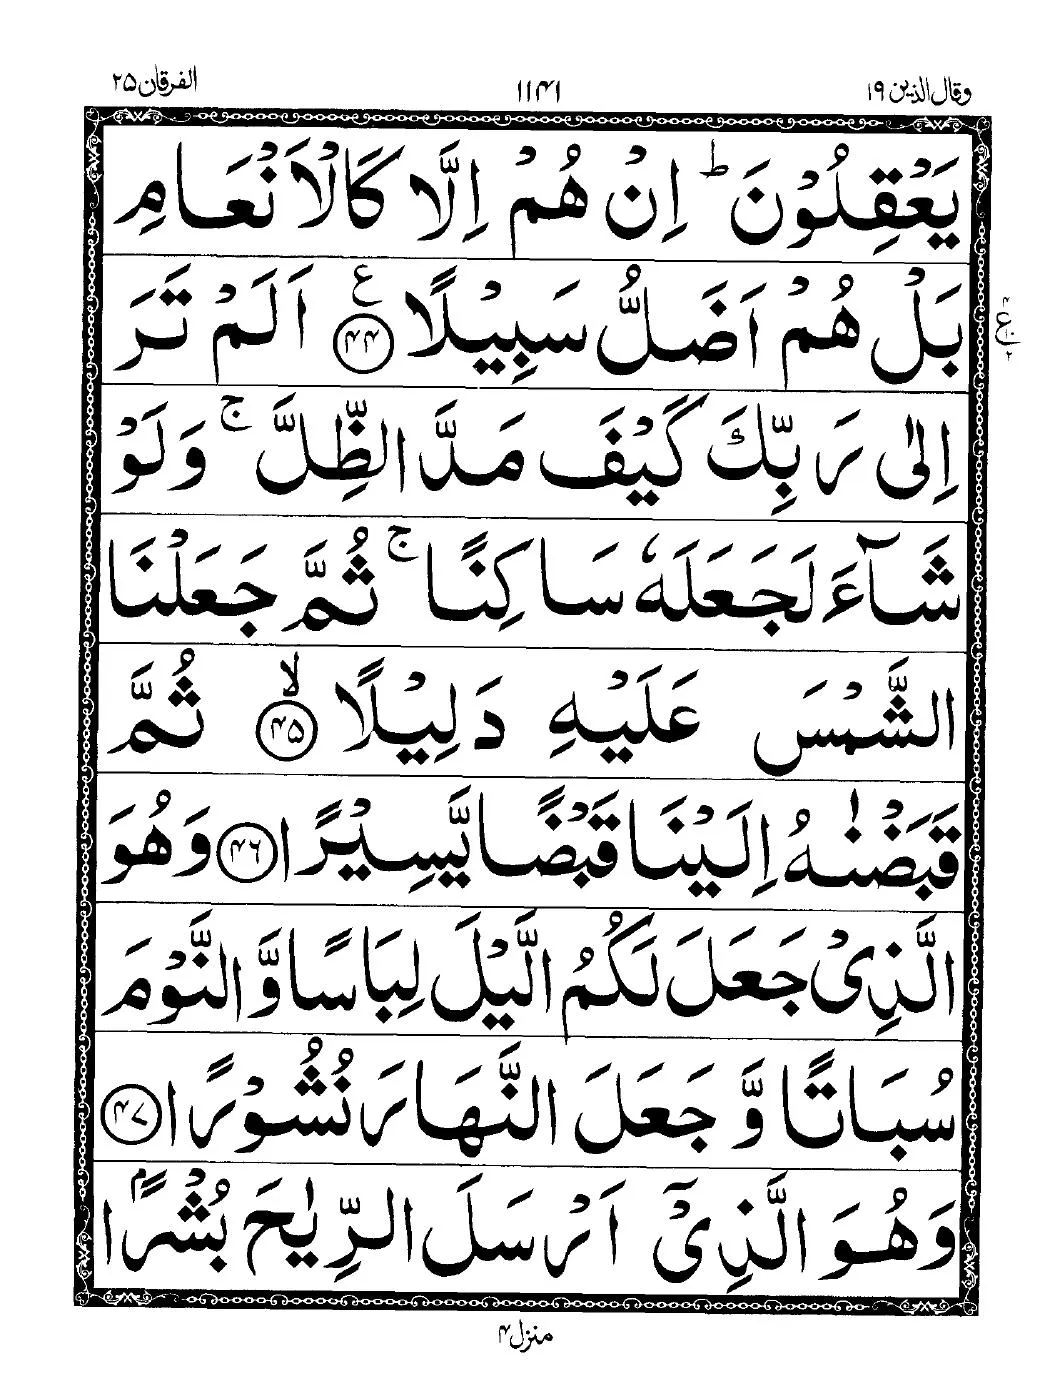 وقال الذین ۱۹
۱۱۴۱
الفرقان ۲۵
یَعْقِلُوْنَ ؕ اِنْ هُمْ اِلَّا كَالْاَنْعَامِ
بَلْ هُمْ اَضَلُّ سَبِیْلًا ۴۴ ع اَلَمْ تَرَ
۴
ع
۲
اِلٰی رَبِّكَ كَیْفَ مَدَّ الظِّلَّ ۚ وَلَوْ
شَآءَ لَجَعَلَهٗ سَاكِنًا ۚ ثُمَّ جَعَلْنَا
الشَّمْسَ عَلَیْهِ دَلِیْلًا ۴۵ ۙ ثُمَّ
قَبَضْنٰهُ اِلَیْنَا قَبْضًا یَّسِیْرًا ۴۶ وَهُوَ
الَّذِیْ جَعَلَ لَكُمُ الَّیْلَ لِبَاسًا وَّالنَّوْمَ
سُبَاتًا وَّ جَعَلَ النَّهَارَ نُشُوْرًا ۴۷
وَهُوَ الَّذِیْۤ اَرْسَلَ الرِّیٰحَ بُشْرًاۢ
منزل ۴